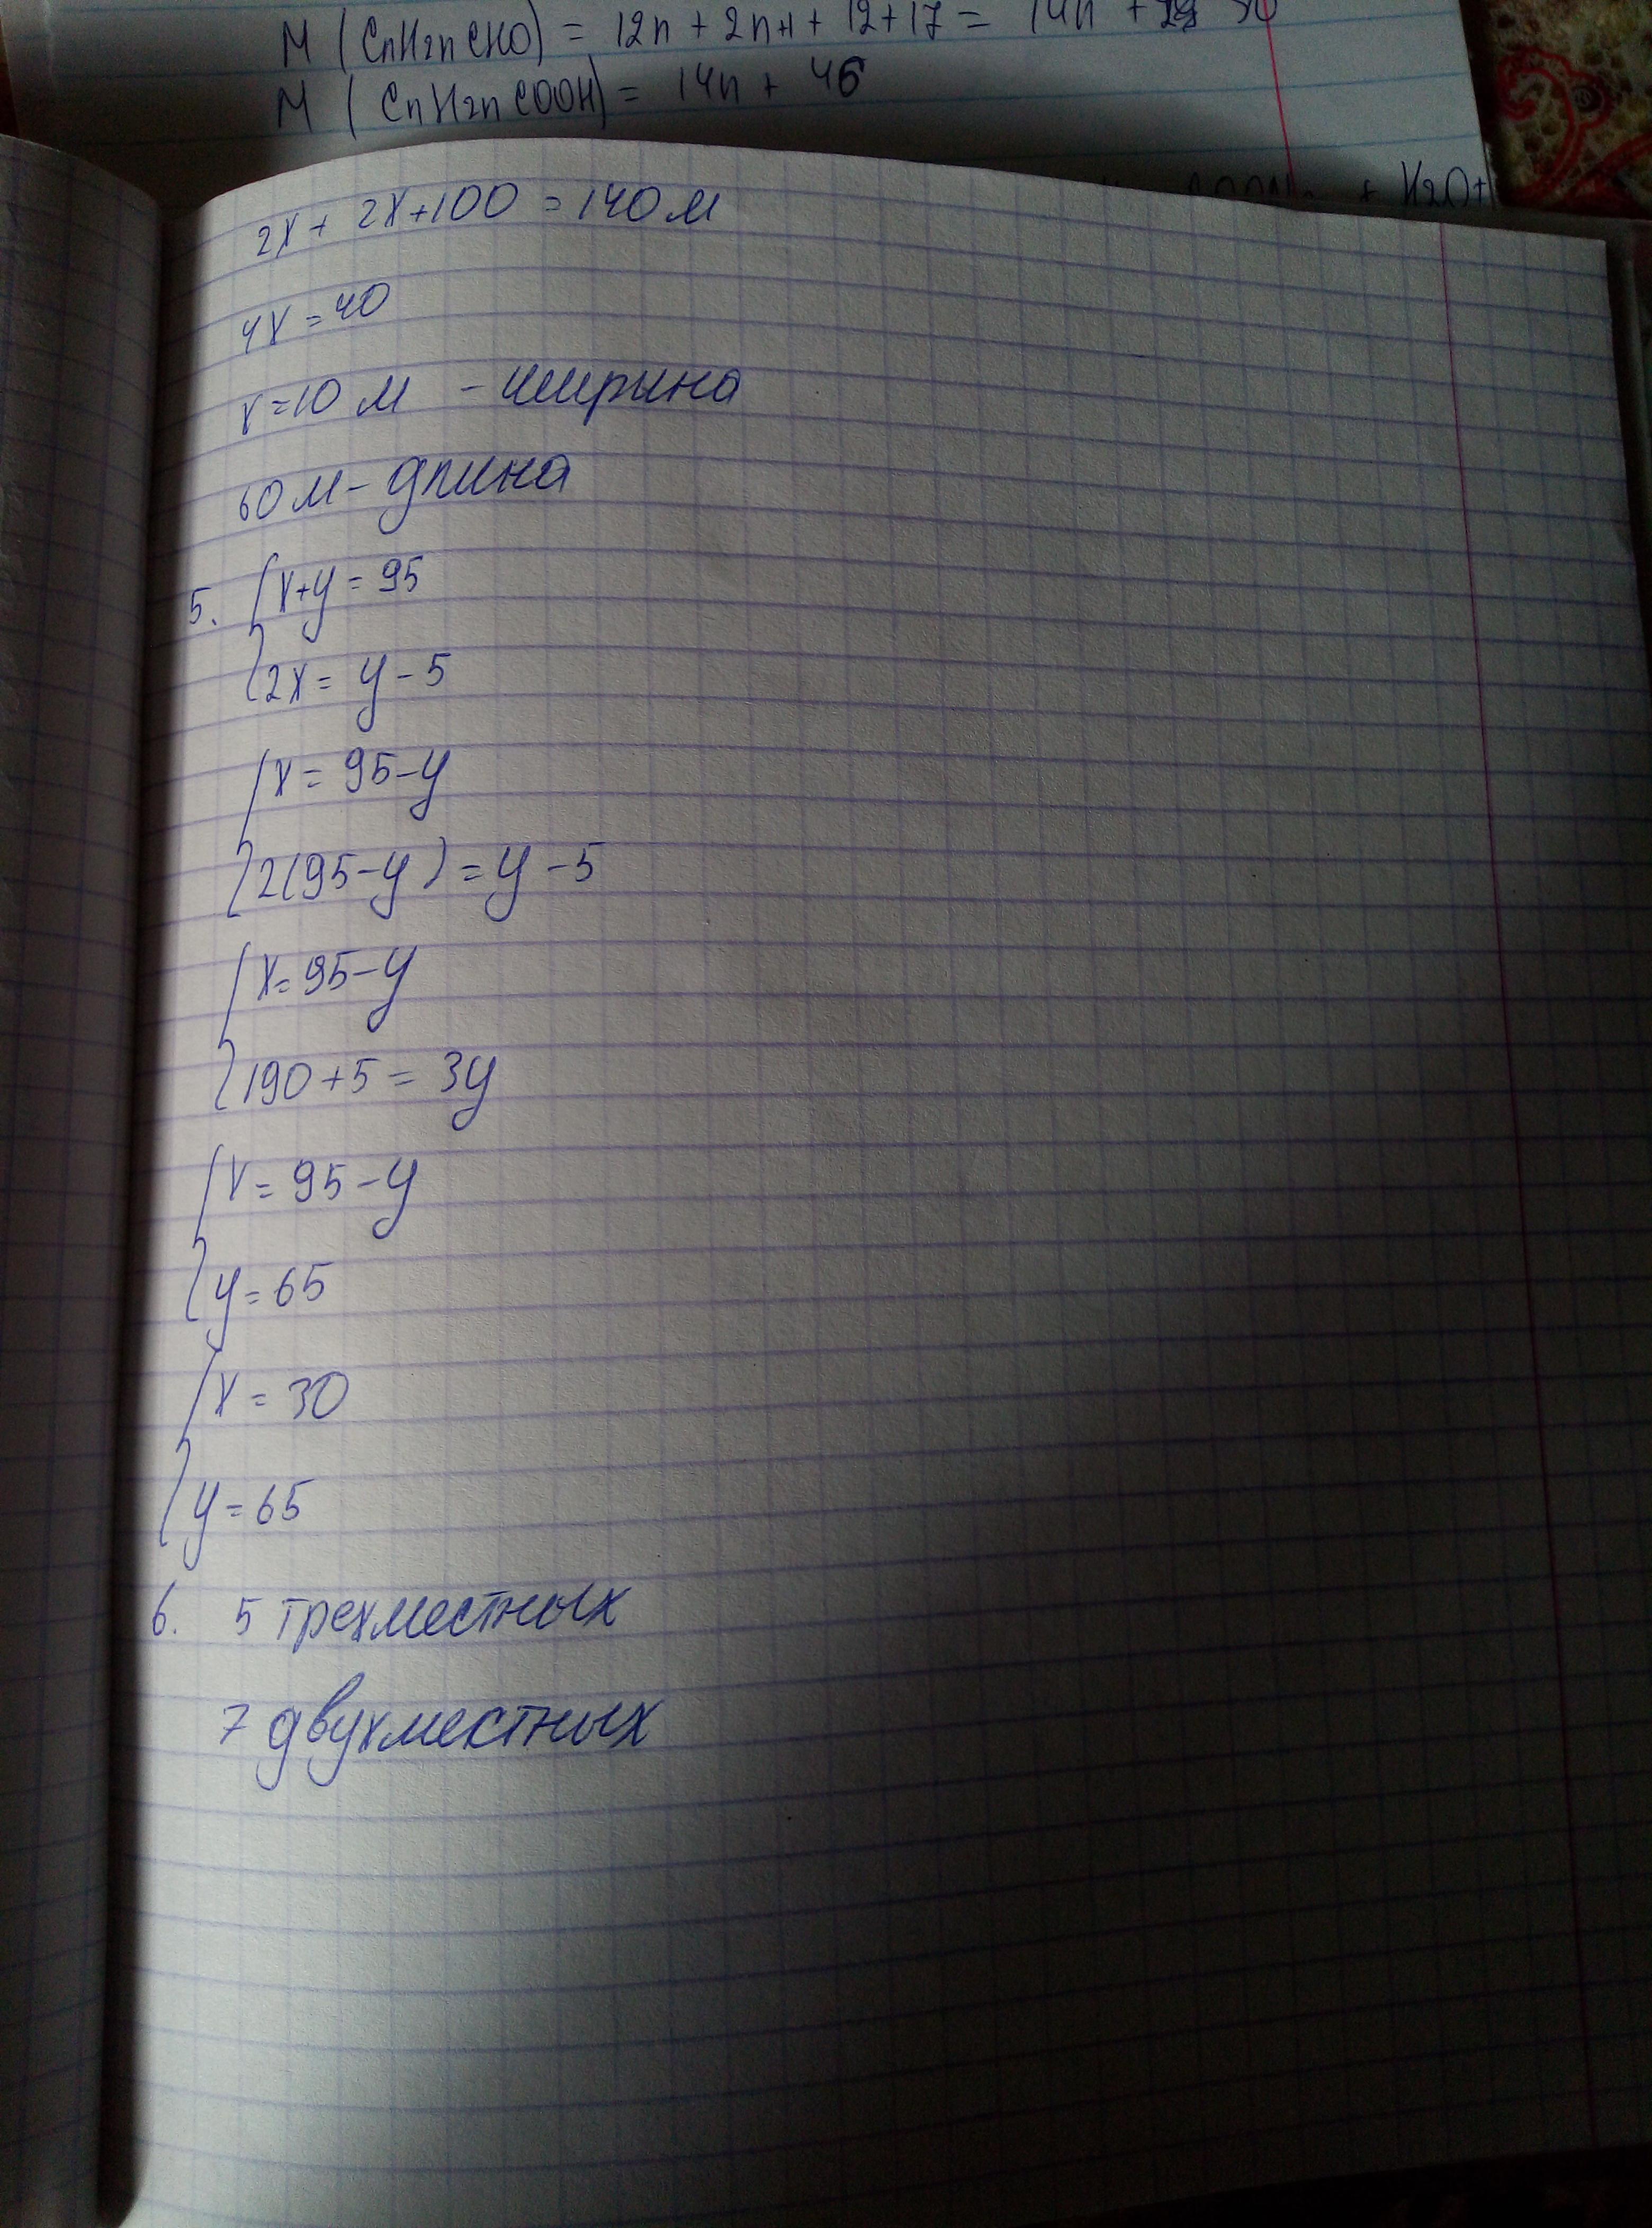 M (CnH2nCHO) = 12n + 2n+1 + 12+17 = 14n +
M (CnH2nCOOH) = 14n + 46
+ K2O+
2x + 2x+100 = 140 м
4x = 40
x=10 м - ширина
60 м - длина
5. x+y = 95
2x = y - 5
x = 95-y
2(95-y) = y - 5
x = 95-y
190 + 5 = 3y
x = 95-y
y = 65
x = 30
y = 65
6. 5 трехместных
7 двухместных